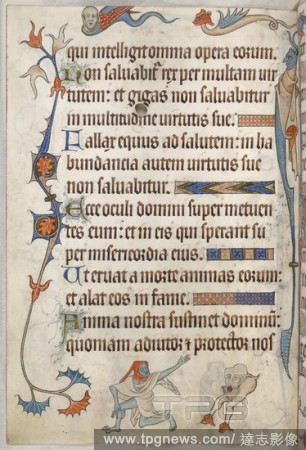 qui intelligit omnia opera eorum.
Non saluabit᷑ rex per multam uir
tutem: et gigas non saluabitur
in multitudine uirtutis sue.
Fallax equus ad salutem: in ha
bundancia autem uirtutis sue
non saluabitur.
Ecce oculi domini super metuen
tes eum: et in eis qui sperant su
per misericordia eius.
Ut eruat a morte animas eorum:
et alat eos in fame.
Anima nostra sustinet dominū:
quoniam adiutor et protector nos
TPG
www.tpgnews.com/ 達志影像